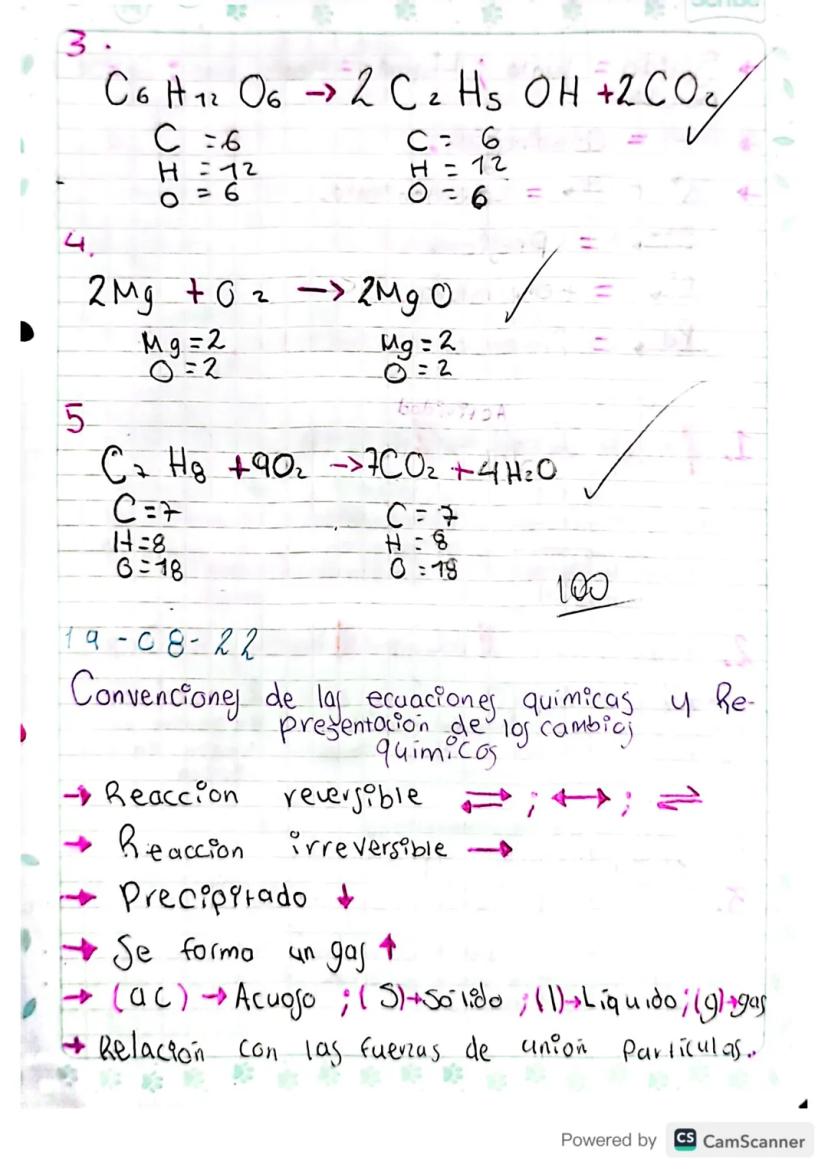 3.
C6 H12 O6 → 2 C2 H5 OH + 2 CO2
C = 6 C = 6
H = 12 H = 12
O = 6 O = 6
4.
2Mg + O2 → 2MgO
Mg = 2 Mg = 2
O = 2 O = 2
5
C7 H8 + 9O2 → 7CO2 + 4H2O
C = 7 C = 7
H = 8 H = 8
O = 18 O = 18
100
19-08-22
Convenciones de las ecuaciones quimicas y Re-
presentación de los cambios
quimicos
→ Reaccion reversible ⇄ ; ↔ ; ⇌
→ Reaccion irreversible →
→ Precipitado ↓
→ Se forma un gas ↑
→ (ac) → Acuoso ; (S) → Sólido ; (l) → Liquido ; (g) → gas
→ Relación con las fuerzas de union particulas..
Powered by CS CamScanner